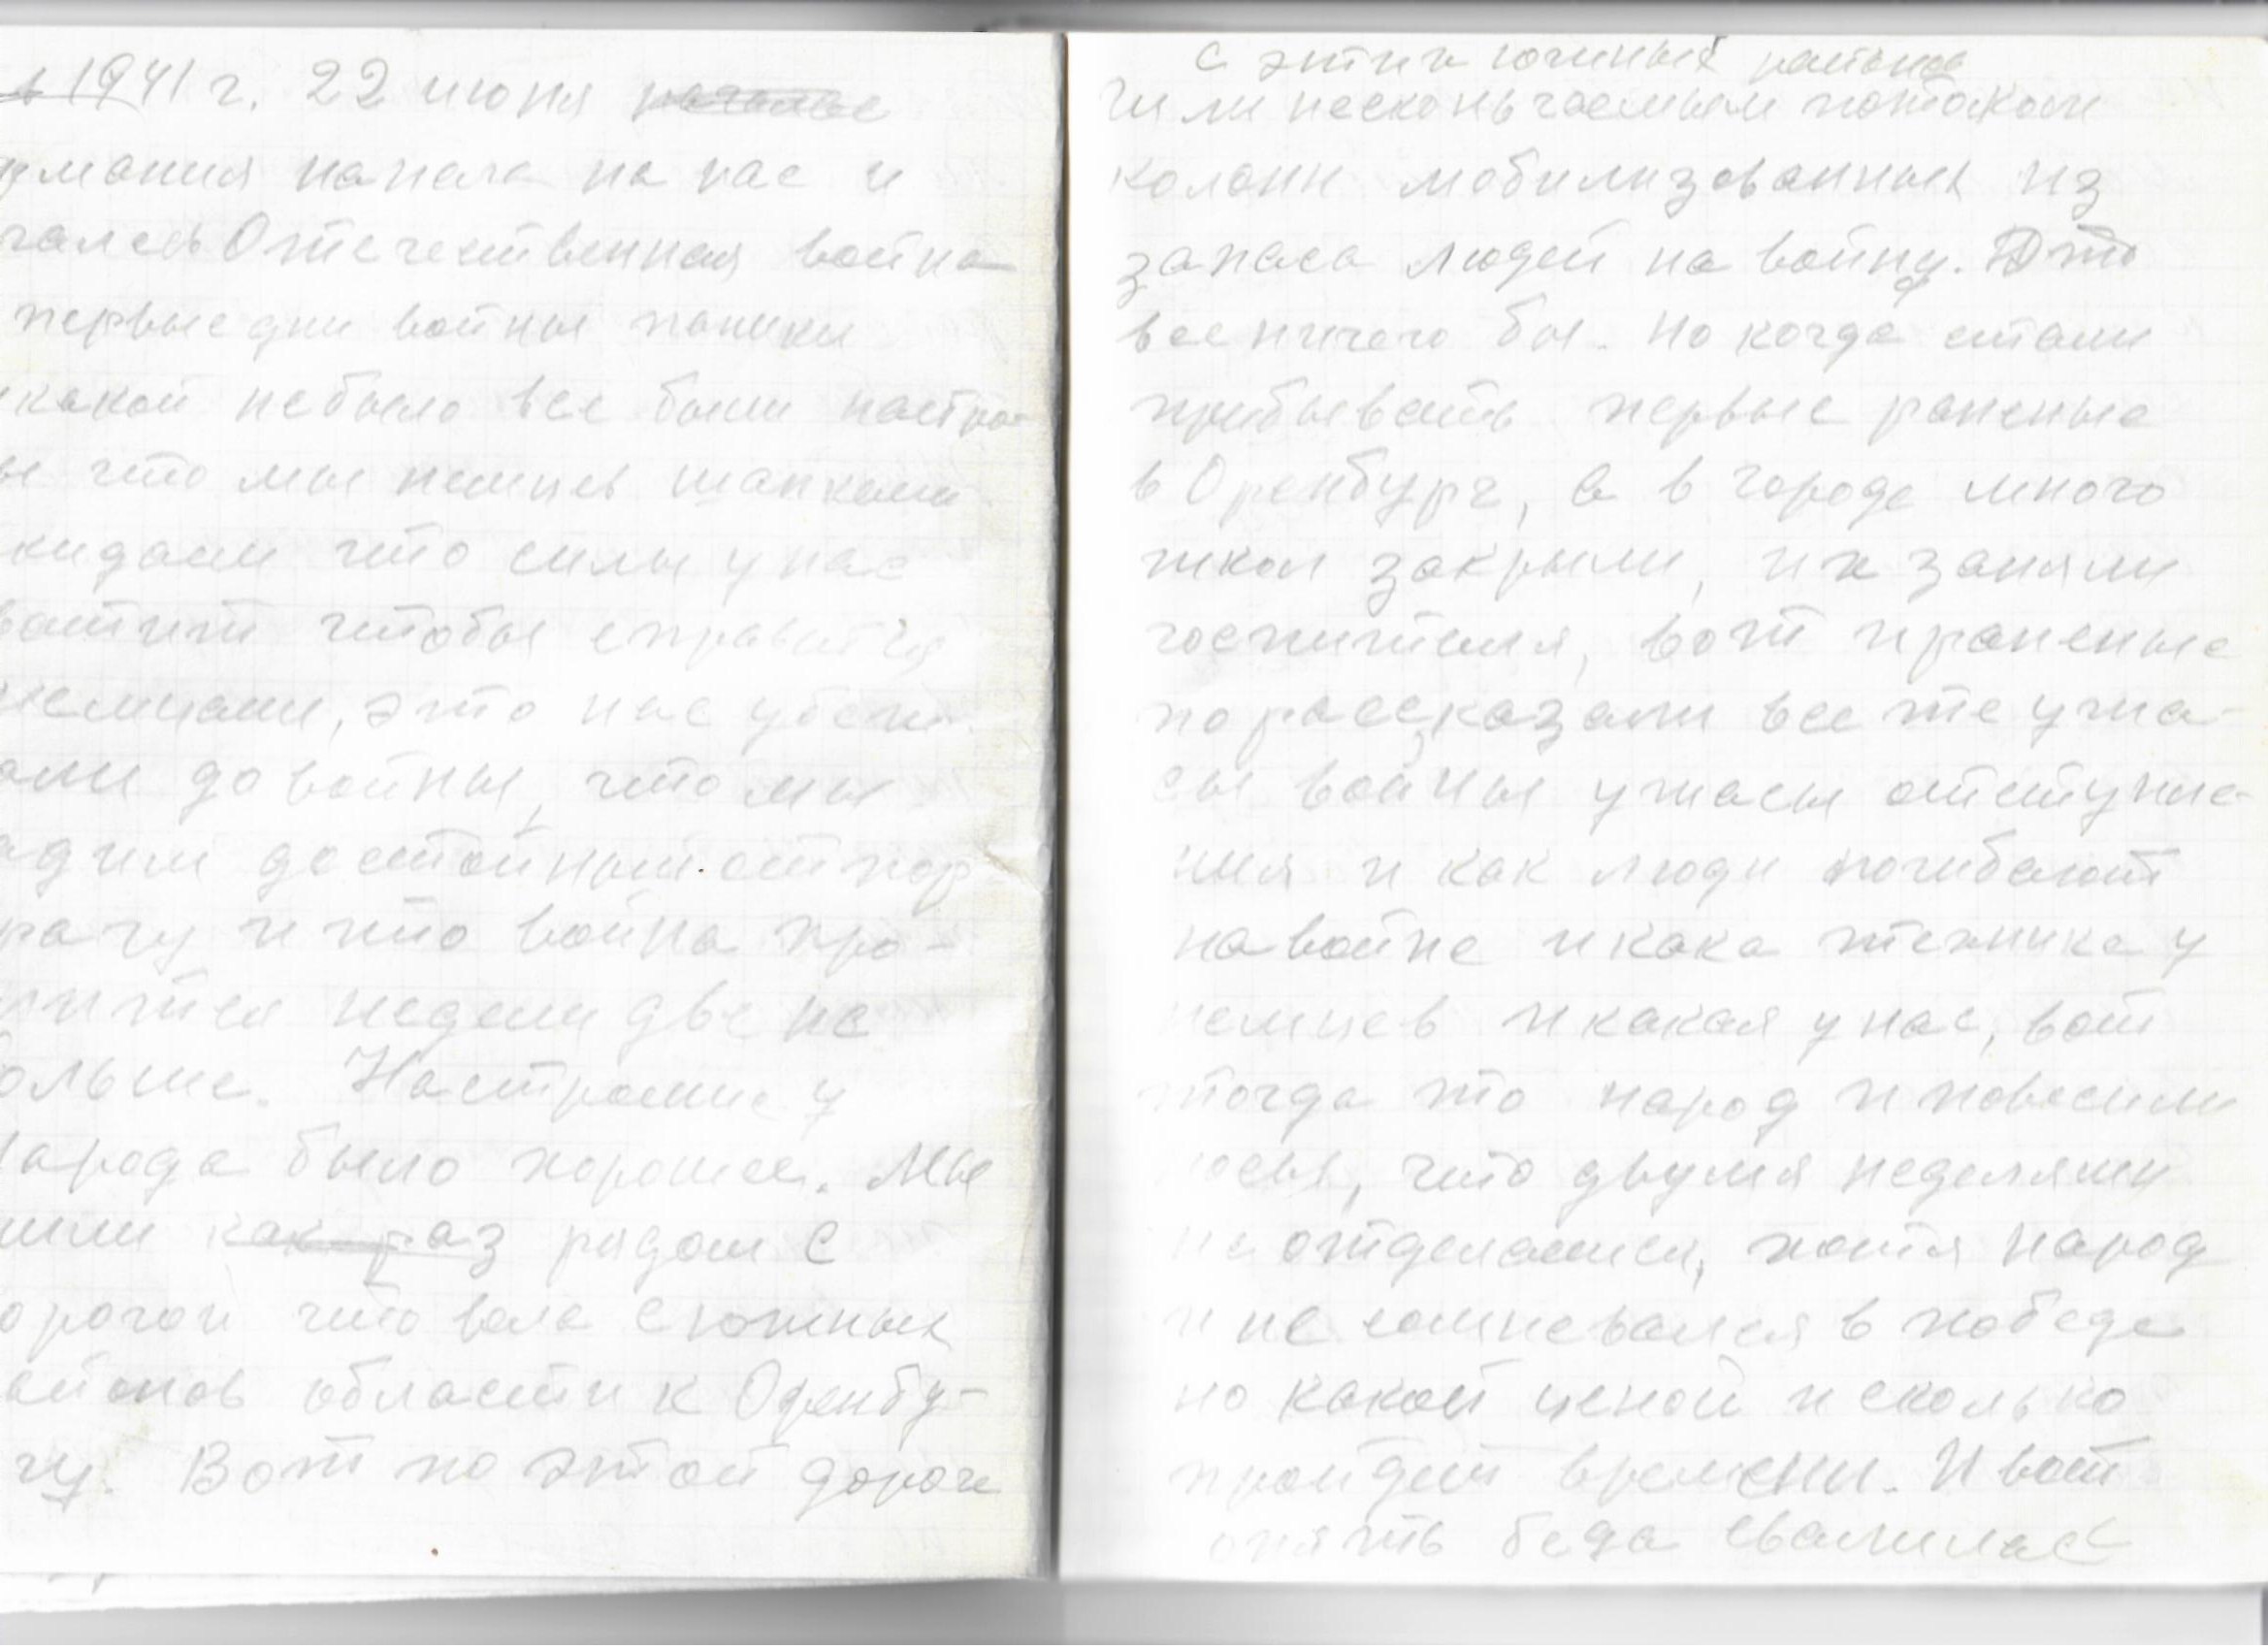 в 1941 г. 22 июня
рмания напала на нас и
чалась Отечественная война
первые дни войны паники
какой небыло все были настро-
ы что мы немцев шапками
кидаем что силы у нас
ватит чтобы справится
немцами, это нас убеж-
али до войны, что мы
адим достойный отпор
рагу и что война про-
лится недели две не
ольше. Настроение у
народа было хорошее. Мы
или как раз рядом с
орогой что вела с южных
айонов области к Оренбу-
гу. Вот по этой дороге
с этих южных районов
Шли нескончаемым потоком
колонн мобилизованных из
запаса людей на войну. Это
все ничего бы. Но когда стали
прибывать первые раненые
в Оренбург, а в городе много
школ закрыли, их заняли
госпиталя, вот и раненые
порассказали все те ужа-
сы войны ужасы отступле-
ния и как люди погибают
на войне и кака техника у
немцев и какая у нас, вот
тогда то народ и повесили
носы, что двумя неделями
не отделаемся, хотя народ
и не сомневался в победе
но какой ценой и сколько
пройдет времени. И вот
опять беда свалилас